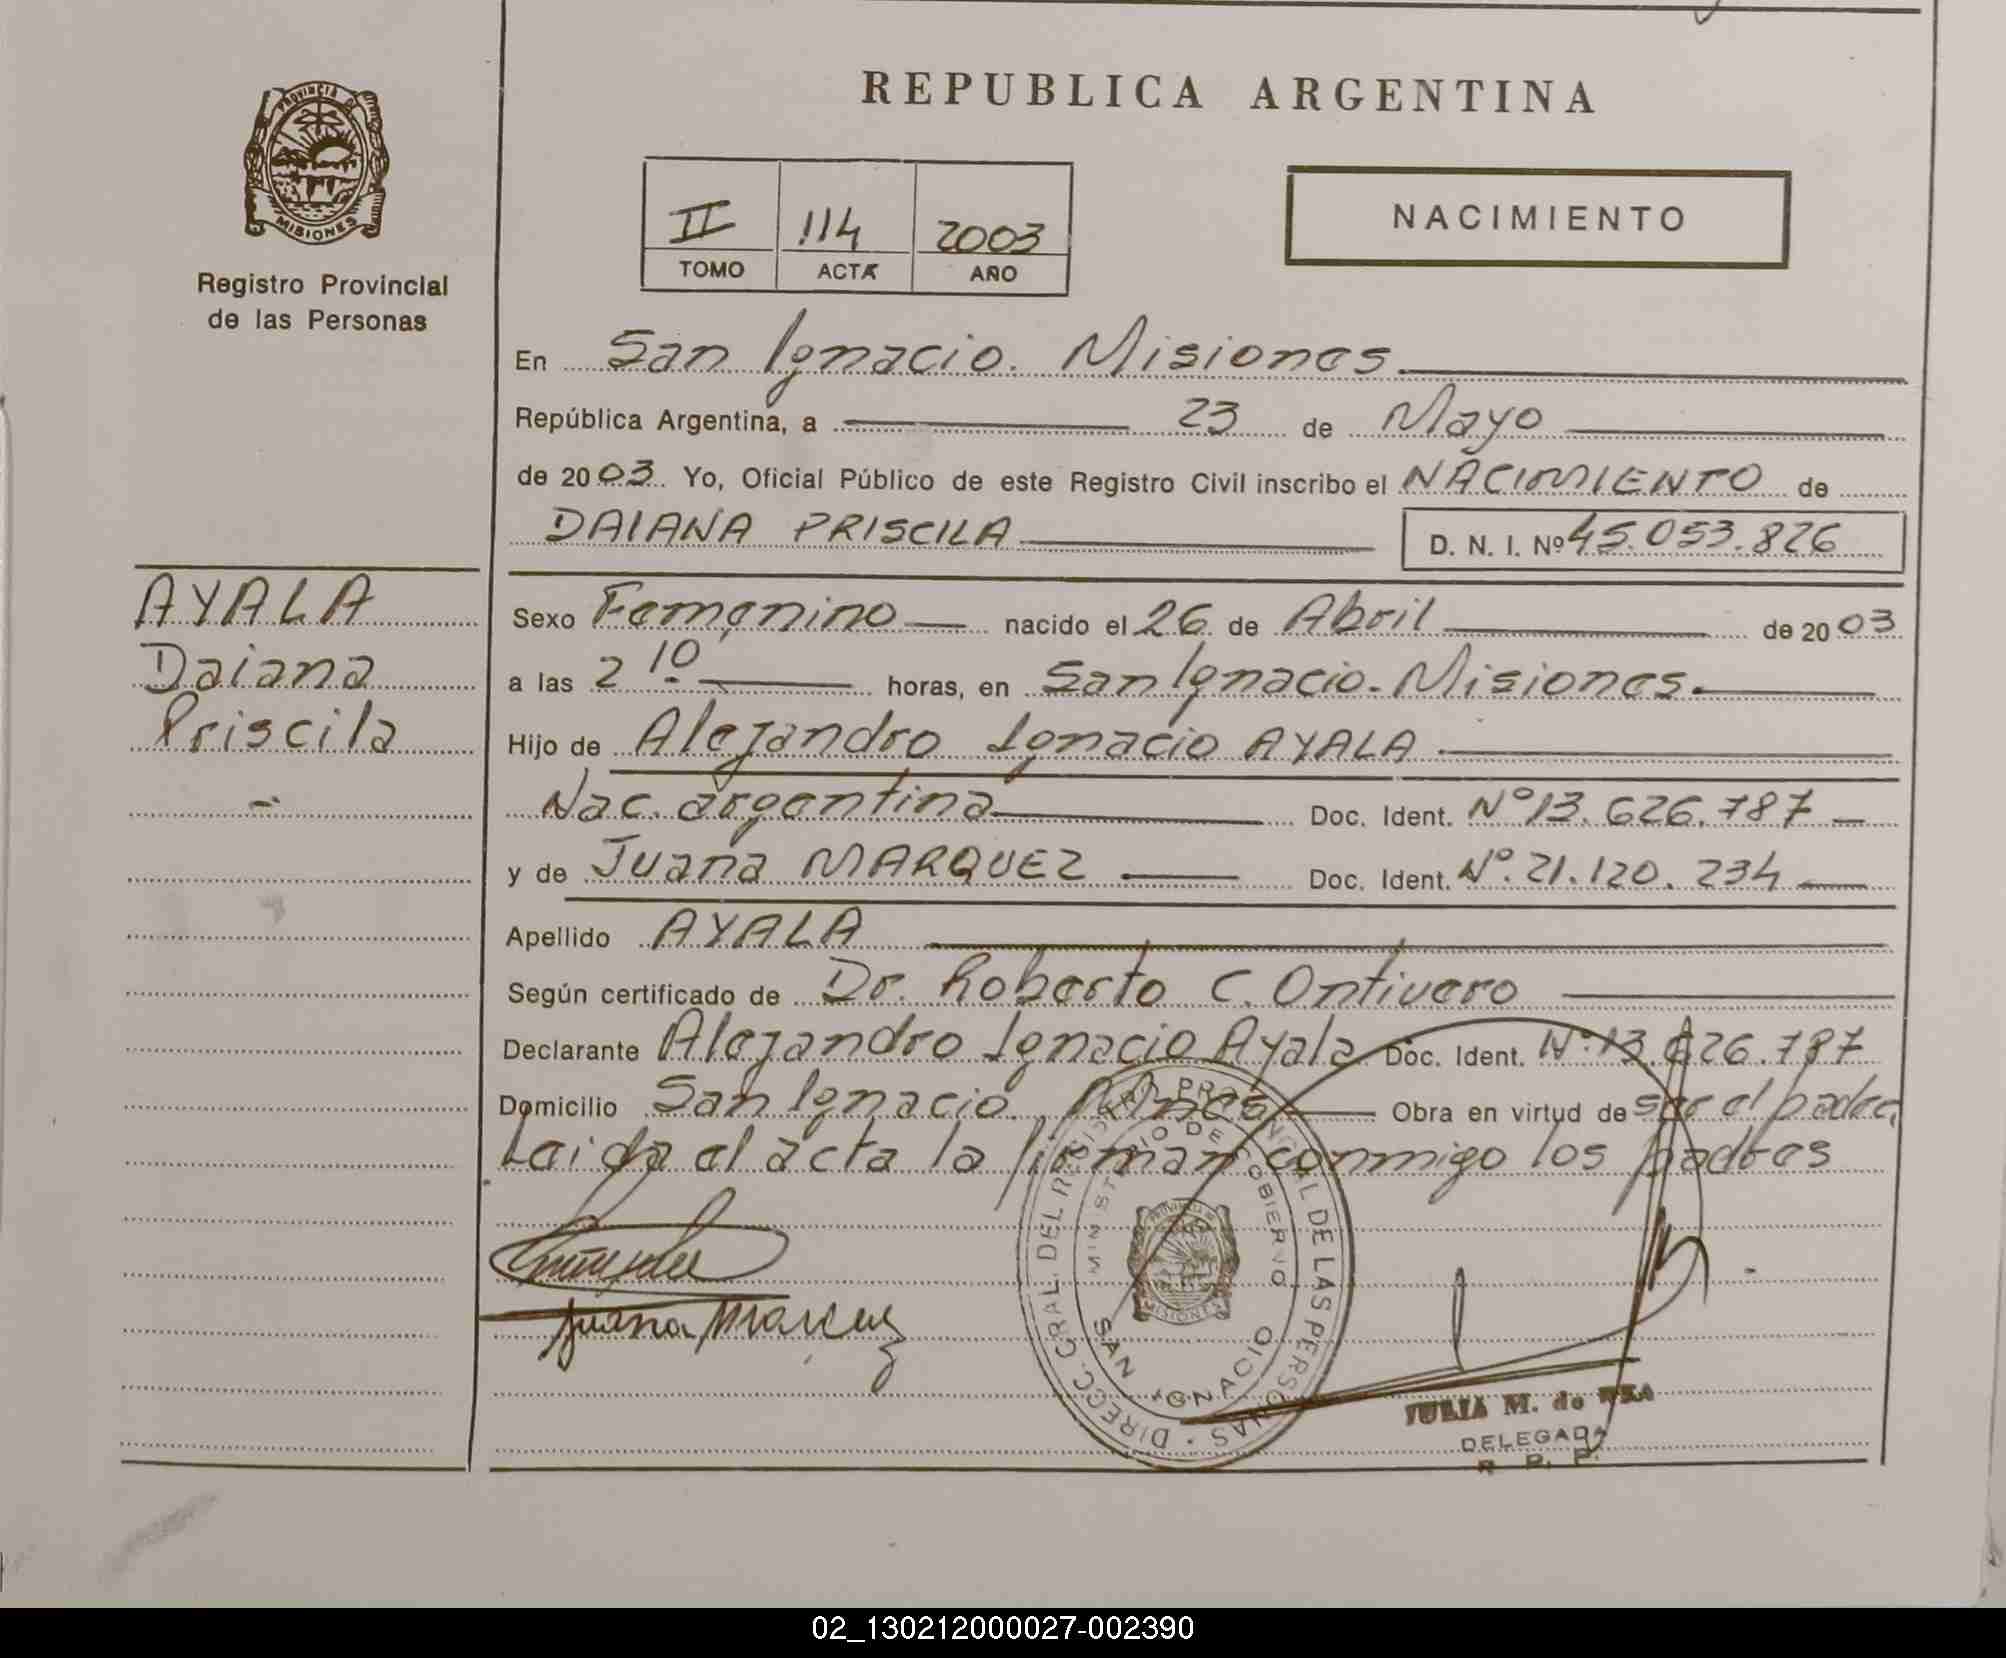 REPUBLICA ARGENTINA
PROVINCIA DE
MISIONES
Registro Provincial
de las Personas
II 114 2003
TOMO ACTA AÑO
NACIMIENTO
En San Ignacio. Misiones
República Argentina, a 23 de Mayo
de 2003. Yo, Oficial Público de este Registro Civil inscribo el NACIMIENTO de
DAIANA PRISCILA D. N. I. Nº 45.053.826
AYALA
Daiana
Priscila
Sexo Femenino nacido el 26 de Abril de 2003
a las 2 10 horas, en San Ignacio. Misiones.
Hijo de Alejandro Ignacio AYALA
Nac. argentina Doc. Ident. Nº 13.626.787
y de Juana MARQUEZ Doc. Ident. Nº. 21.120.234
Apellido AYALA
Según certificado de Dr. Roberto C. Ontivero
Declarante Alejandro Ignacio Ayala Doc. Ident. Nº 13.626.787
Domicilio San Ignacio. Mnes Obra en virtud de ser el padre,
Leida el acta la firman conmigo los padres
Juana Marquez
DIRECC. GRAL. DEL REGISTRO PROVINCIAL DE LAS PERSONAS
MINISTERIO DE GOBIERNO
MISIONES
SAN IGNACIO
JULIA M. de
DELEGADA
R. P. P.
02_130212000027-002390